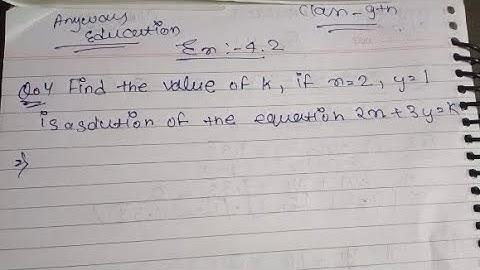 Anyways
Education
Class - 9th
Ex :- 4.2
Q04 Find the value of k, if x=2, y=1
is a solution of the equation 2x+3y=k
=)